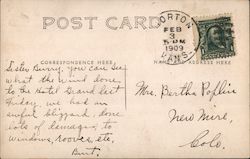 POST CARD
NORTON
KANS.
FEB
3
5 PM
1909
CORRESPONDENCE HERE
NAME AND ADDRESS HERE
Sister Burny, you can see
what the wind done
to the Hotel Grand last
Friday we had an
awful blizzard done
lots of damages to
windows, rooves, etc.
Burt.
Mrs. Bertha
New
Colo.